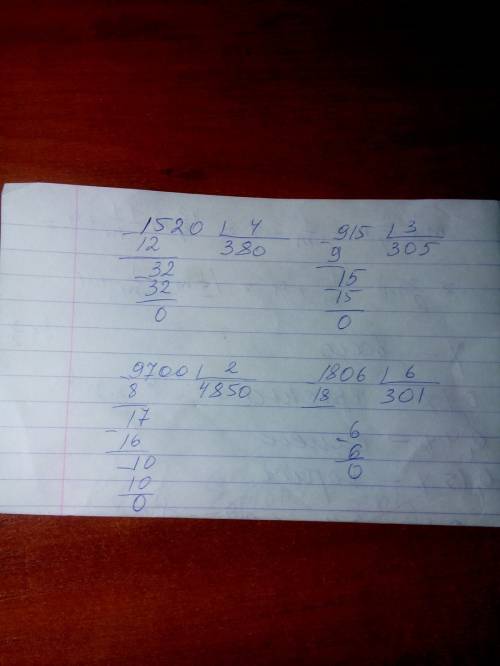 1520 4
12 380
32
32
0
915 3
9 305
15
15
0
9700 2
8 4850
17
- 16
10
10
0
1806 6
18 301
6
- 6
0